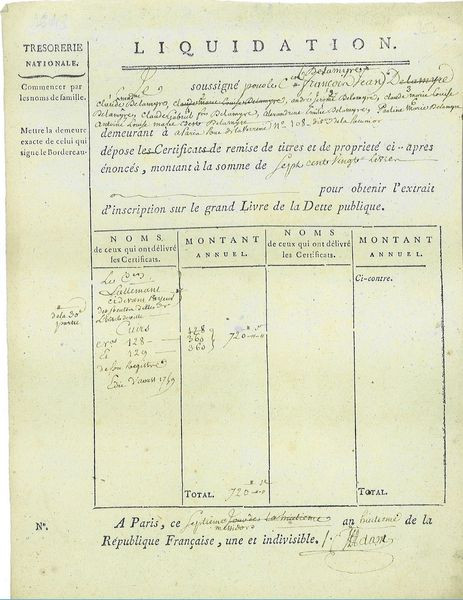 TRESORERIE
NATIONALE.
Commencer par
les noms de famille.
Mettre la demeure
exacte de celui qui
signe le Bordereau.
LIQUIDATION.
Le soussigné pour le Cen Delamyre
françois Jean Delamyre
claude Delamyre, claude marie Louise Delamyre, andré jerôme Delamyre, claude marie Louise
Delamyre, claude gabriel Delamyre, alexandrine Emilie Delamyre, Pauline Marie Delamyre
Delamyre
demeurant à Paris Rue de Varenne No. 108
dépose les Certificats de remise de titres et de propriété ci-après
énoncés, montant à la somme de Sept cents Vingt Livres
pour obtenir l'extrait
d'inscription sur le grand Livre de la Dette publique.
NOMS
de ceux qui ont délivré
les Certificats.
MONTANT
ANNUEL.
NOMS
de ceux qui ont délivré
les Certificats.
MONTANT
ANNUEL.
Ci-contre.
Le Cen
Lallemant
cidevant Payeur
de la 30e
partie
Cuirs
128
360
129
360
720
de son Registre
TOTAL. 720
TOTAL.
No.
A Paris, ce septieme messidor an huitieme de la
République Française, une et indivisible. Adam